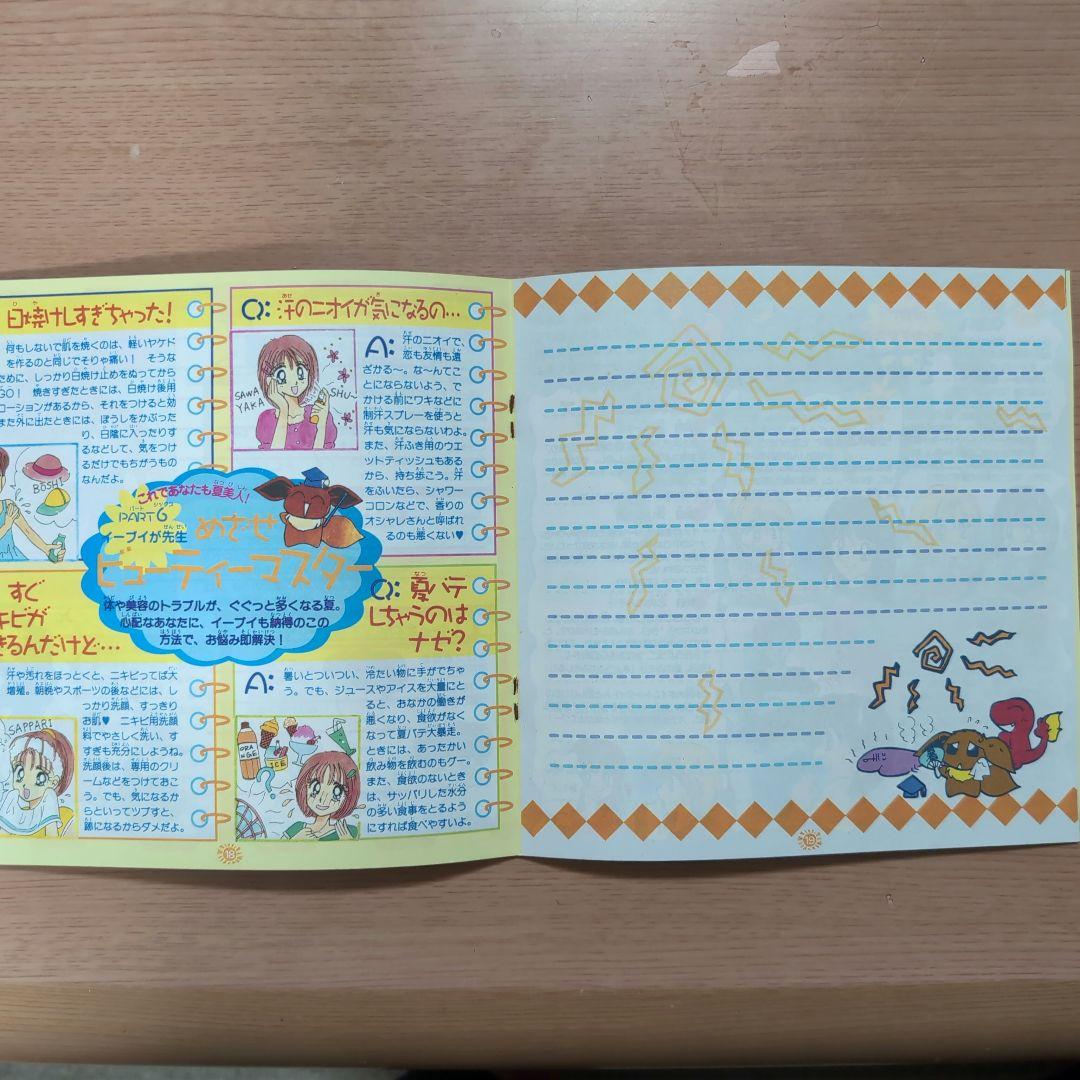 日焼けしすぎちゃった!
何もしないで肌を焼くのは、軽いヤケド
を作るのと同じでそりゃ痛い! そうな
ために、しっかり日焼け止めをぬってから
GO! 焼きすぎたときには、日焼け後用
ローションがあるから、それをつけると効
また外に出たときには、ぼうしをかぶった
り、日陰に入ったりす
るなどして、気をつけ
るだけでもちがうもの
なんだよ。
BOSHI
Q: 汗のニオイが気になるの…
SAWA
YAKA
SHU~
A: 汗のニオイで、
恋も友情も遠
ざかる〜。な〜んてこ
とにならないよう、で
かける前にワキなどに
制汗スプレーを使うと
汗も気にならないわよ。
また、汗ふき用のウエ
ットティッシュもある
から、持ち歩こう。汗
をふいたら、シャワー
コロンなどで、香りの
オシャレさんと呼ばれ
るのも悪くない♥
これであなたも夏美人!
PART6
イーブイが先生
めざせ
ビューティーマスター
体や美容のトラブルが、ぐぐっと多くなる夏。
心配なあなたに、イーブイも納得のこの
方法で、お悩み即解決!
すぐ
キビが
きるんだけど…
汗や汚れをほっとくと、ニキビってば大
増殖。朝晩やスポーツの後などには、し
っかり洗顔、すっきり
お肌♥ ニキビ用洗顔
料でやさしく洗い、す
すぎも充分にしようね。
洗顔後は、専用のクリ
ームなどをつけておこ
う。でも、気になるか
らといってツブすと、
跡になるからダメだよ。
SAPPARI
Q: 夏バテ
しちゃうのは
ナゼ?
A: 暑いとついつい、冷たい物に手がでちゃ
う。でも、ジュースやアイスを大量にと
ると、おなかの働きが
悪くなり、食欲がなく
なって夏バテ大暴走。
ときには、あったかい
飲み物を飲むのもグー。
また、食欲のないとき
は、サッパリした水分
の多い食事をとるよう
にすれば食べやすいよ。
ORA
NGE
ICE
18
19